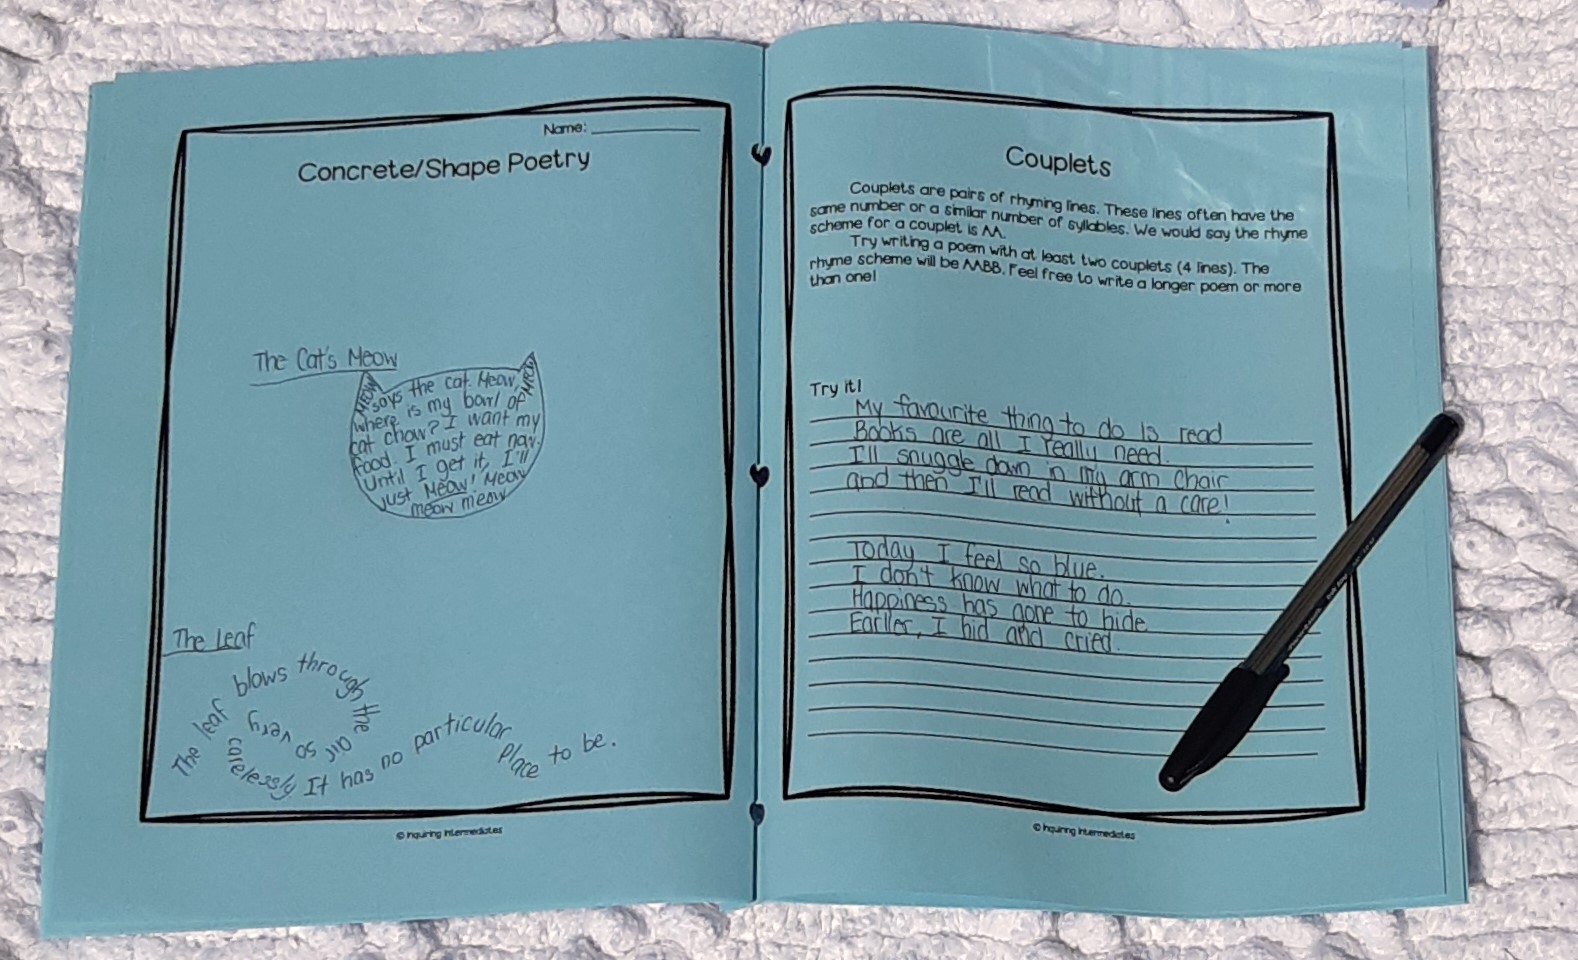 Name:
Concrete/Shape Poetry
The Cat's Meow
MEOW
MEOW
says the cat. Meow,
where is my bowl of
cat chow? I want my
food. I must eat now.
Until I get it, I'll
just Meow! Meow
meow meow
The Leaf
The leaf blows through the air so very carelessly. It has no particular place to be.
© Inquiring Intermediates
Couplets
Couplets are pairs of rhyming lines. These lines often have the
same number or a similar number of syllables. We would say the rhyme
scheme for a couplet is AA.
Try writing a poem with at least two couplets (4 lines). The
rhyme scheme will be AABB. Feel free to write a longer poem or more
than one!
Try it!
My favourite thing to do is read
Books are all I really need.
I'll snuggle down in my arm chair
and then I'll read without a care!
Today I feel so blue.
I don't know what to do.
Happiness has gone to hide
Earlier, I hid and cried.
© Inquiring Intermediates